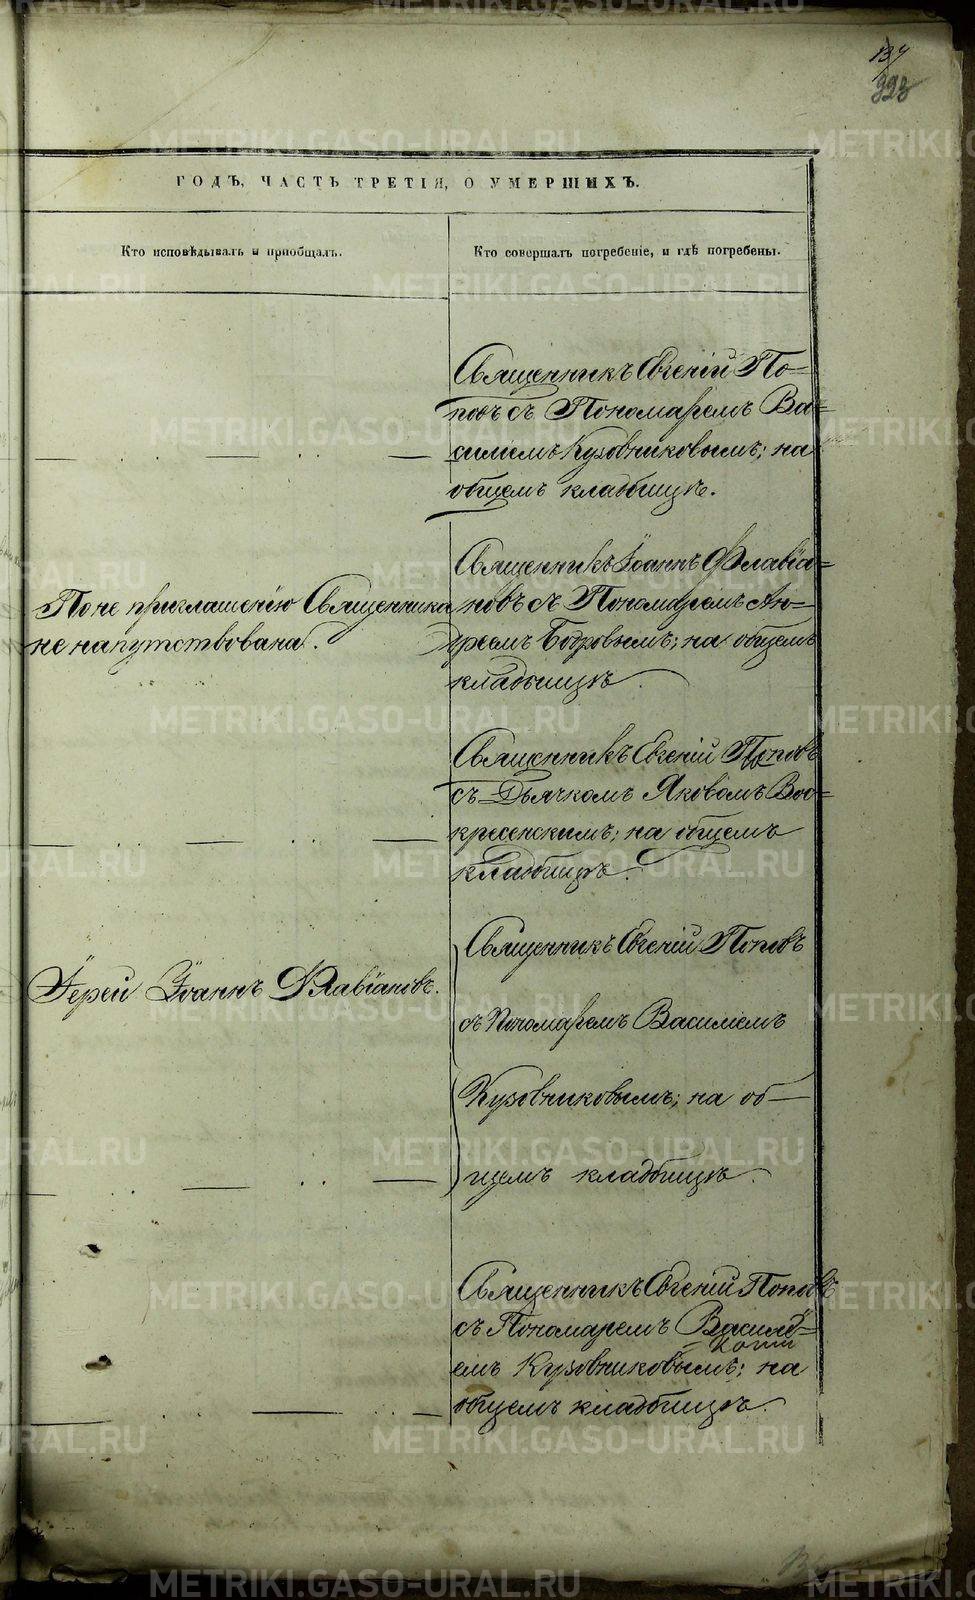 134
ГОДЪ, ЧАСТЬ ТРЕТІЯ, О УМЕРШИХЪ.
Кто исповѣдывалъ и пріобщалъ.
Кто совершалъ погребеніе, и гдѣ погребены.
Священникъ Евгеній По=
повъ съ Пономаремъ Ва=
силіемъ Кузовниковымъ; на
общемъ кладбищѣ.
По не приглашенію Священника
не напутствована.
Священникъ Іоаннъ Флавіа=
новъ съ Пономаремъ Ан=
дреемъ Бобровымъ; на общемъ
кладбищѣ.
Священникъ Евгеній Поповъ
съ Дьячкомъ Яковомъ Вос=
кресенскимъ; на общемъ
кладбищѣ.
Іерей Іоаннъ Флавіановъ.
Священникъ Евгеній Поповъ
съ Пономаремъ Василіемъ
Кузовниковымъ; на об=
щемъ кладбищѣ.
Священникъ Евгеній Поповъ
съ Пономаремъ Василі=
емъ Кузовниковымъ; на
общемъ кладбищѣ.
METRIKI.GASO-URAL.RU